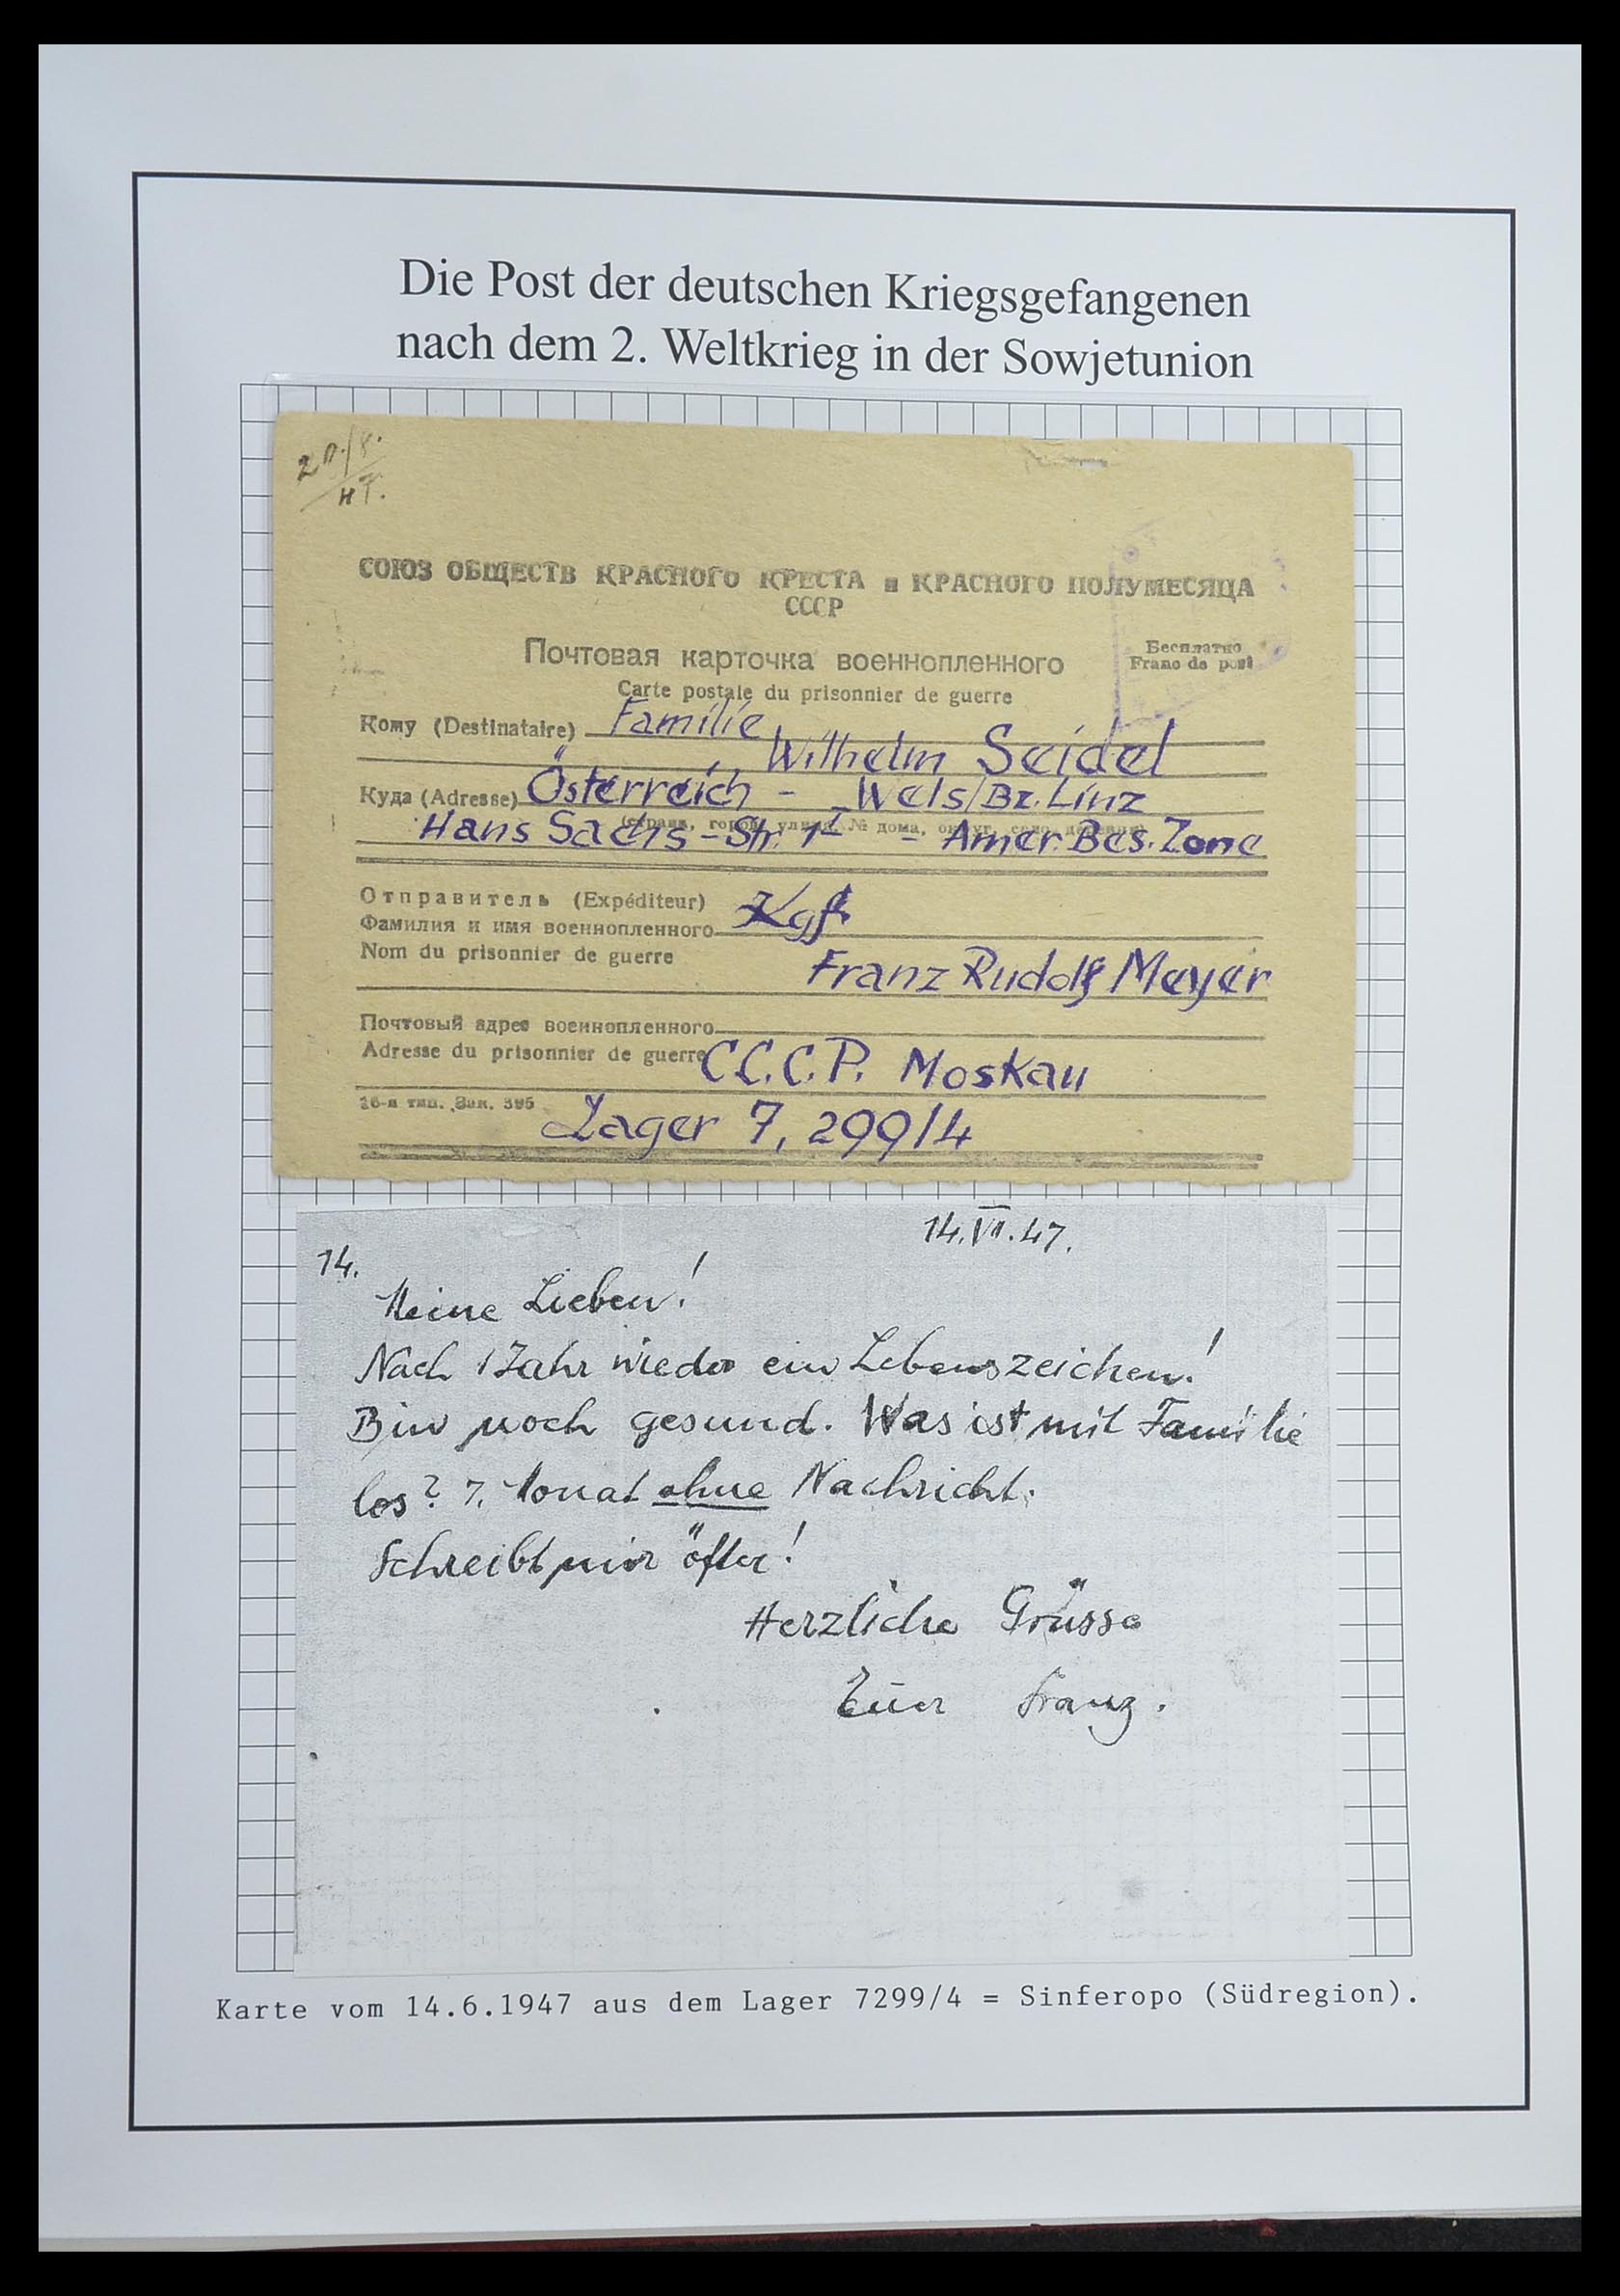 Die Post der deutschen Kriegsgefangenen
nach dem 2. Weltkrieg in der Sowjetunion
СОЮЗ ОБЩЕСТВ КРАСНОГО КРЕСТА и КРАСНОГО ПОЛУМЕСЯЦА
СССР
Почтовая карточка военнопленного
Бесплатно
Franc de port
Carte postale du prisonnier de guerre
Кому (Destinataire) Familie
Wilhelm Seidel
Куда (Adresse) Österreich - Wels/Bz. Linz
(страна, город, улица, № дома, округ, село, деревня)
Hans Sachs-Str. - Amer. Bes. Zone
Отправитель (Expéditeur)
Фамилия и имя военнопленного Kgf.
Nom du prisonnier de guerre
Franz Rudolf Meyer
Почтовый адрес военнопленного
Adresse du prisonnier de guerre C.C.C.P. Moskau
16-я тип. Зак. 395
Lager 7, 299/4
14. 47.
14.
Meine Lieben!
Nach 1 Jahr wieder ein Lebenszeichen!
Bin noch gesund. Was ist mit Familie
los? 7. Monat ohne Nachricht.
Schreibt mir öfter!
Herzliche Grüsse
Euer Franz.
Karte vom 14.6.1947 aus dem Lager 7299/4 = Sinferopo (Südregion).